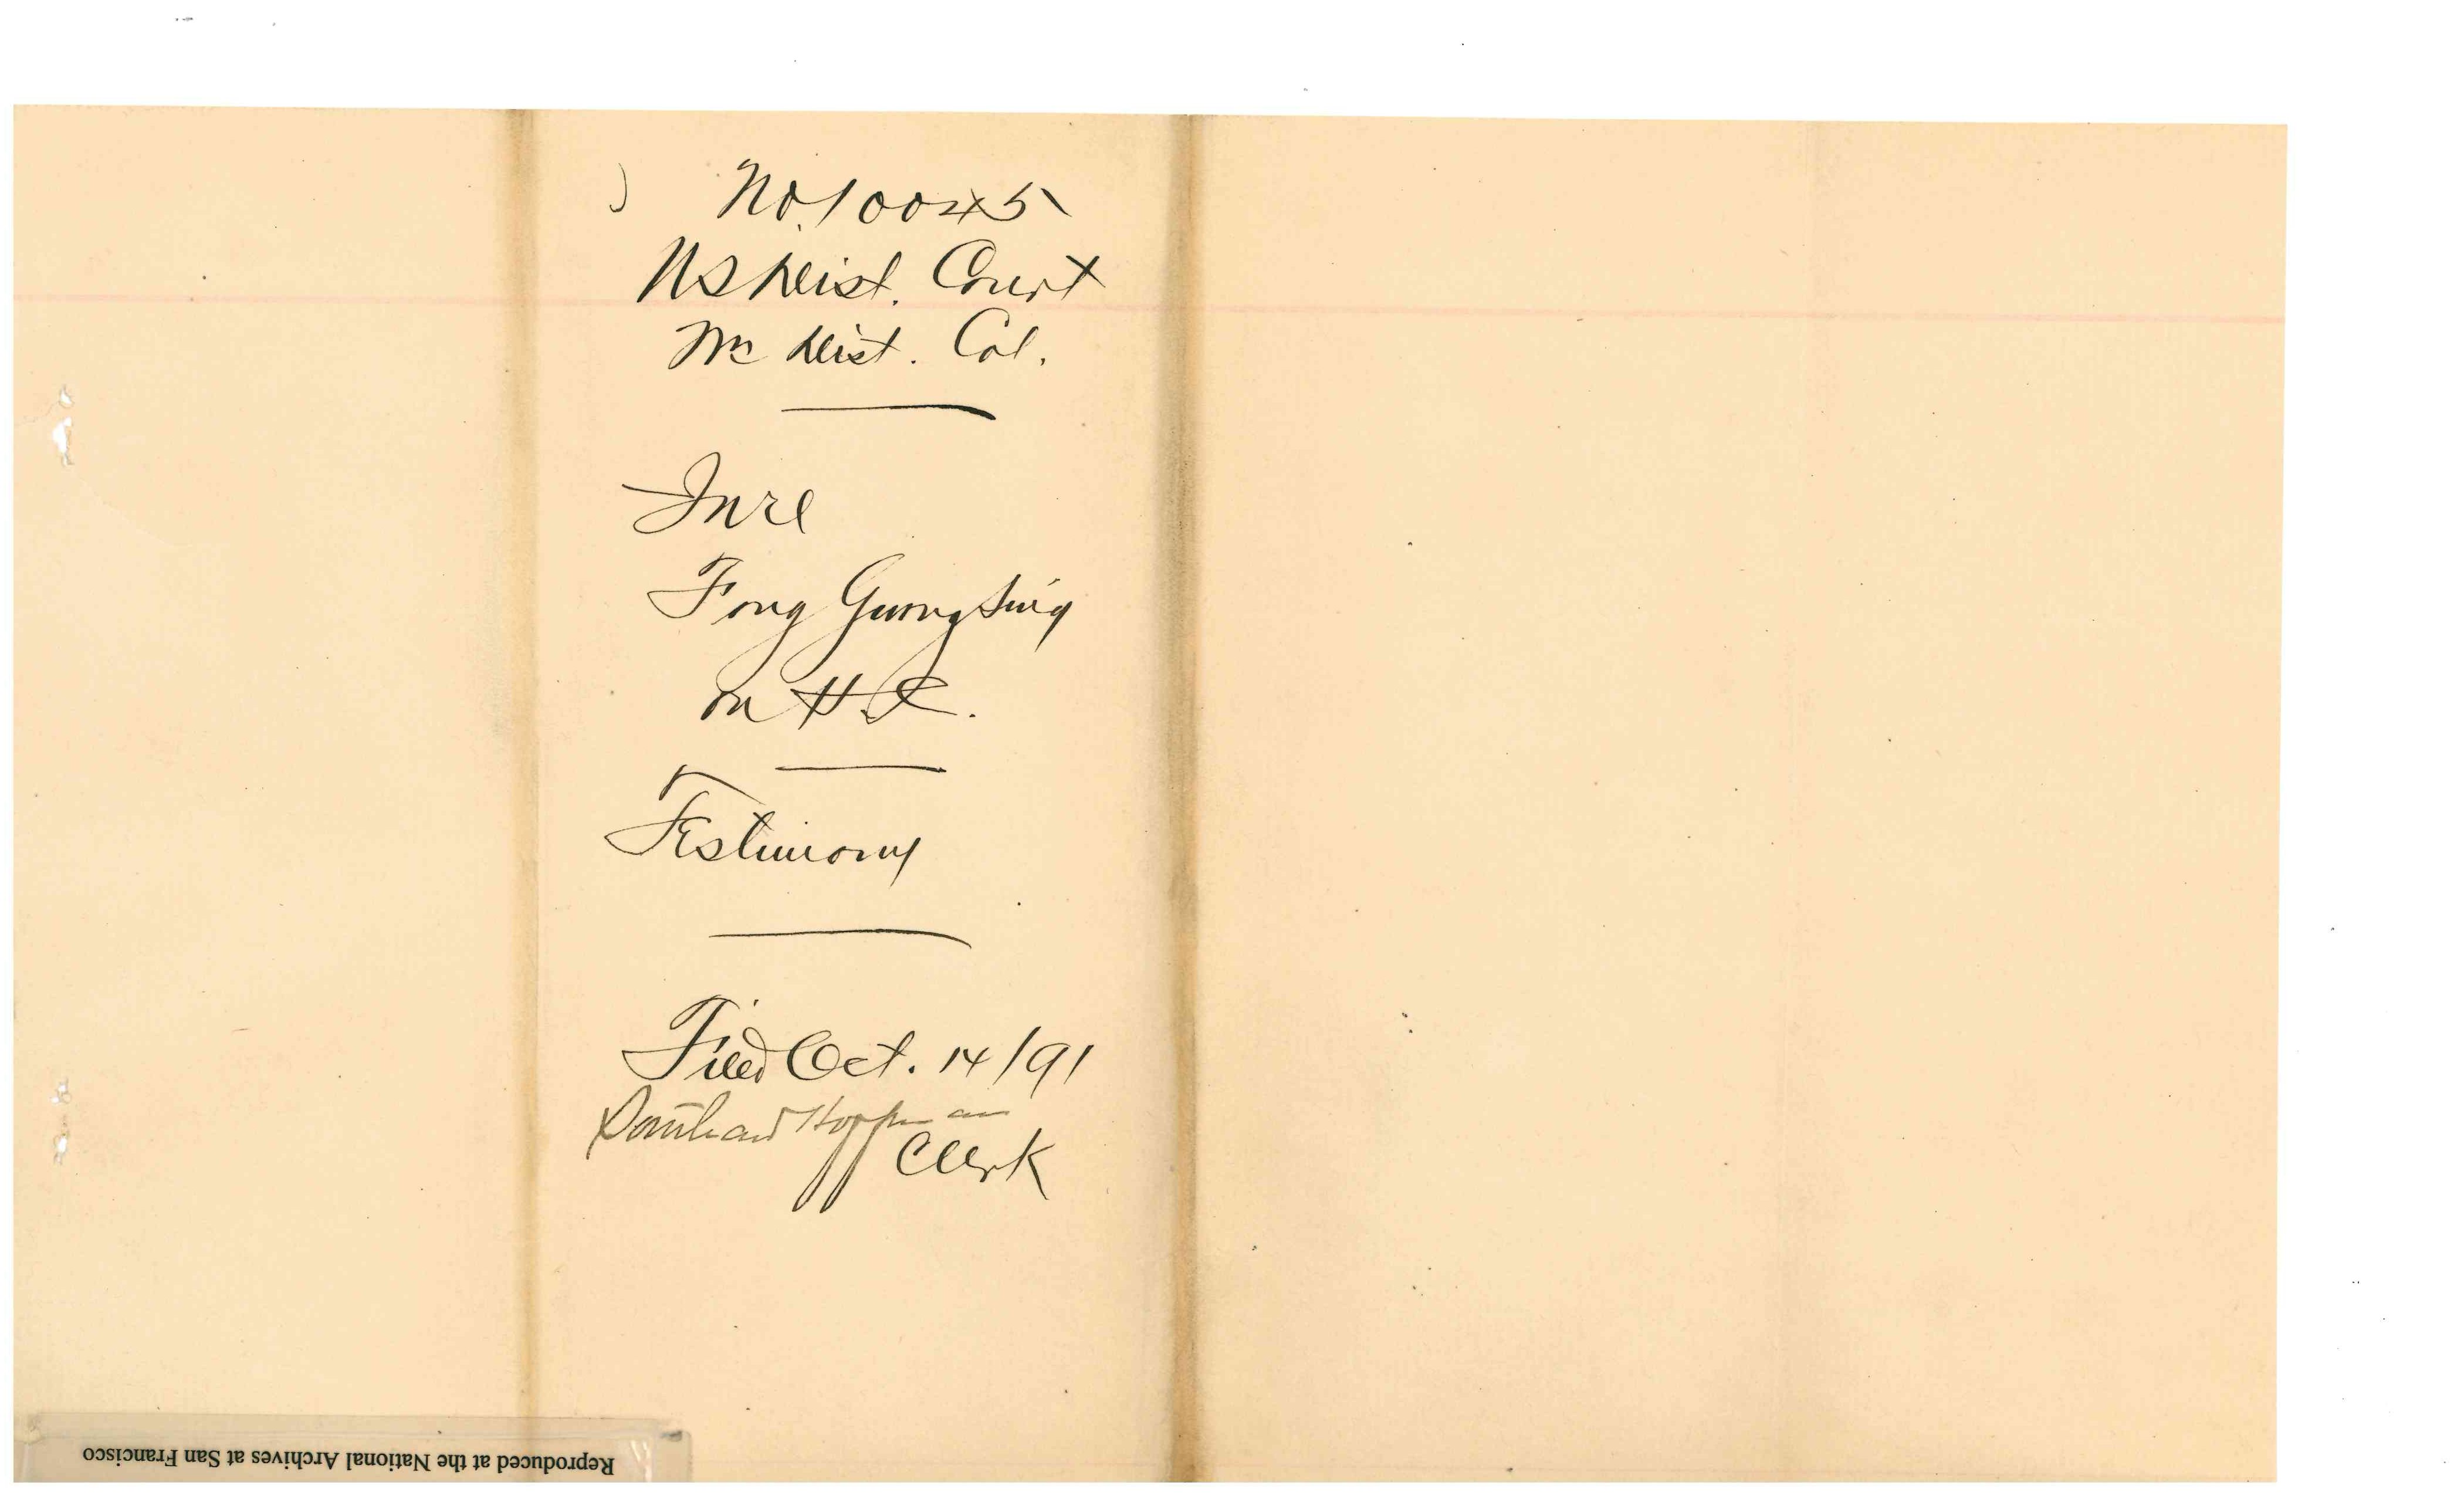 No. 10045
US Dist. Court
No Dist. Cal.
In re
Fong Gung Sing
on H.C.
Testimony
Filed Oct. 14/91
Southard Hoffman
Clerk
Reproduced at the National Archives at San Francisco